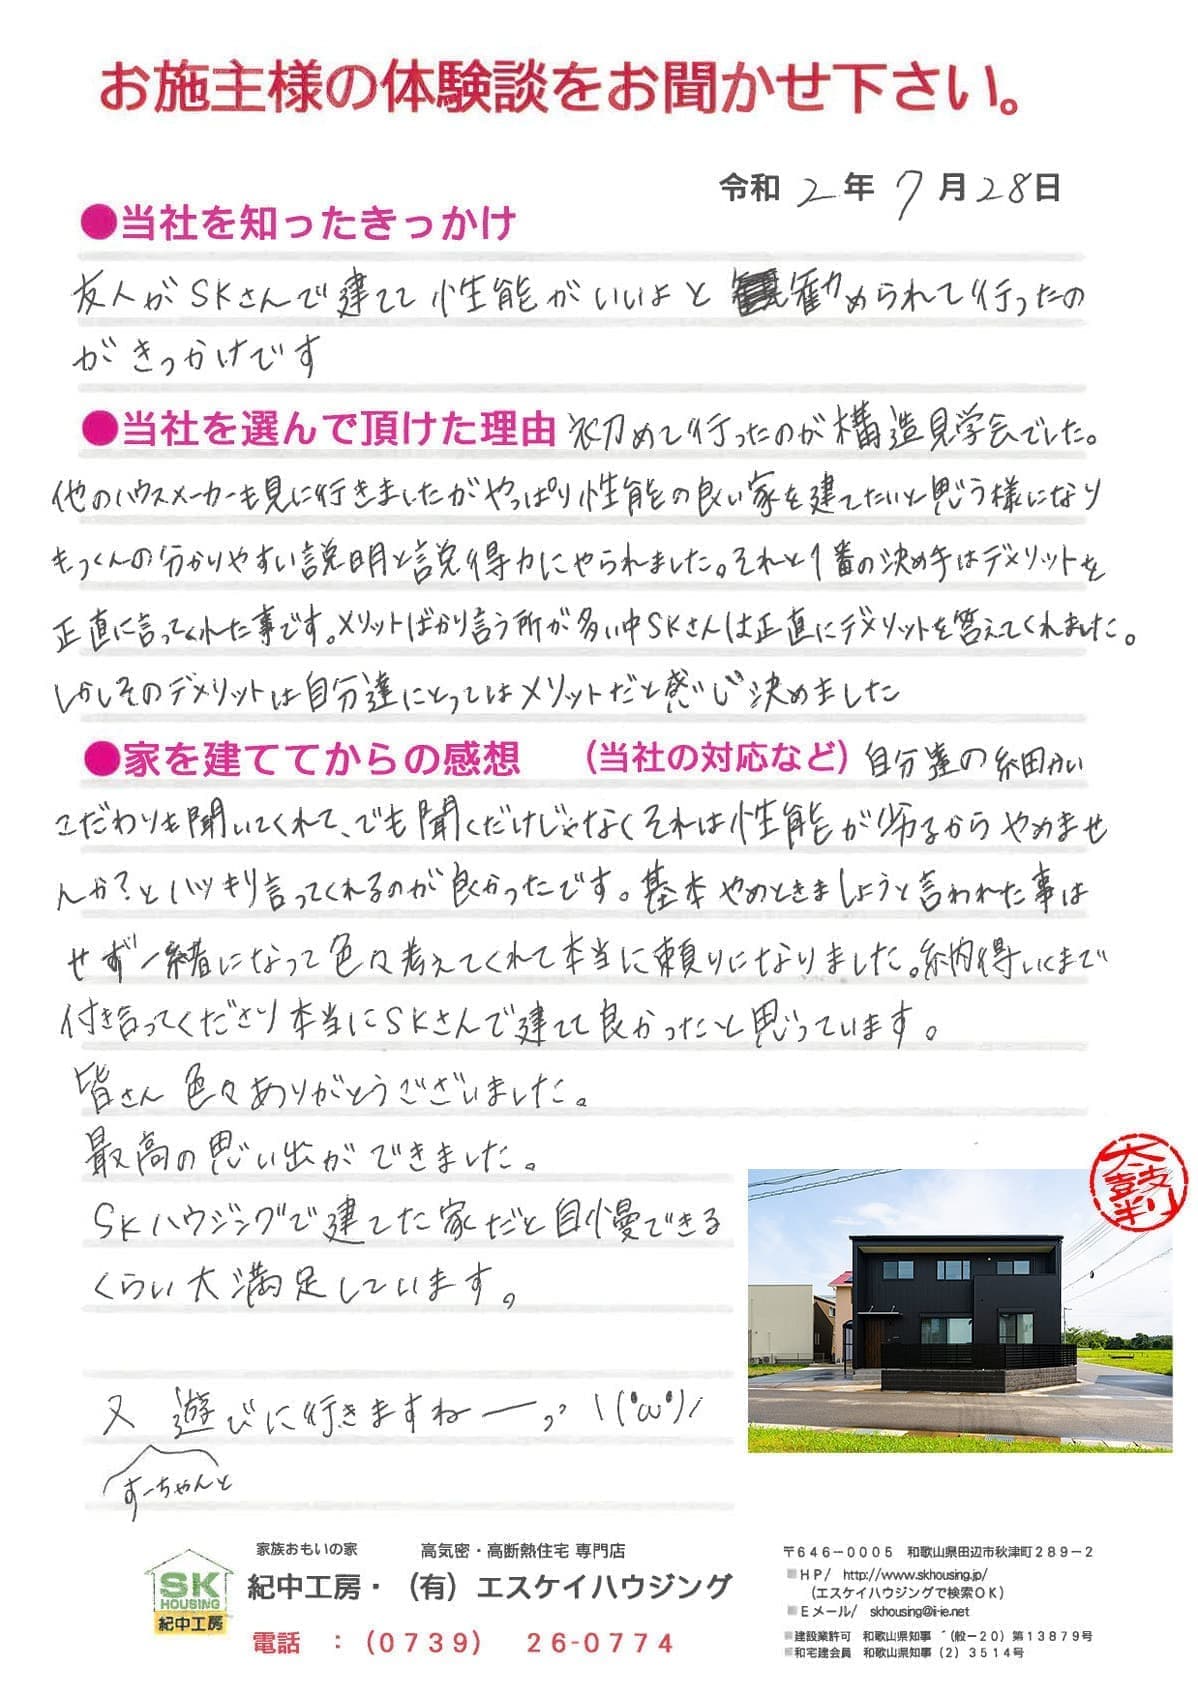 お施主様の体験談をお聞かせ下さい。
令和 2 年 7 月 28 日
●当社を知ったきっかけ
友人がSKさんで建てて性能がいいよと 勧められて行ったの
がきっかけです
●当社を選んで頂けた理由 初めて行ったのが構造見学会でした。
他のハウスメーカーも見に行きましたがやっぱり性能の良い家を建てたいと思う様になり
もっくんの分かりやすい説明と説得力にやられました。それと1番の決め手はデメリットを
正直に言ってくれた事です。メリットばかり言う所が多い中SKさんは正直にデメリットを答えてくれました。
しかしそのデメリットは自分達にとってはメリットだと感じ決めました
●家を建ててからの感想 (当社の対応など) 自分達の細かい
こだわりも聞いてくれて、でも聞くだけじゃなくそれは性能が劣るからやめませ
んか?とハッキリ言ってくれるのが良かったです。基本やめときましょうと言われた事は
せず一緒になって色々考えてくれて本当に頼りになりました。納得いくまで
付き合ってくださり本当にSKさんで建てて良かったと思っています。
皆さん色々ありがとうございました。
最高の思い出ができました。
SKハウジングで建てた家だと自慢できる
くらい大満足しています。
又 遊びに行きますねーっ \(°ω°)/
すーちゃんと
太鼓判
家族おもいの家 高気密・高断熱住宅 専門店
SK HOUSING 紀中工房
紀中工房・(有)エスケイハウジング
電話 :(0739) 26-0774
〒646-0005 和歌山県田辺市秋津町289-2
HP/ http://www.skhousing.jp/
(エスケイハウジングで検索OK)
Eメール/ skhousing@i-ie.net
建設業許可 和歌山県知事 (般-20)第13879号
和宅建会員 和歌山県知事(2)3514号